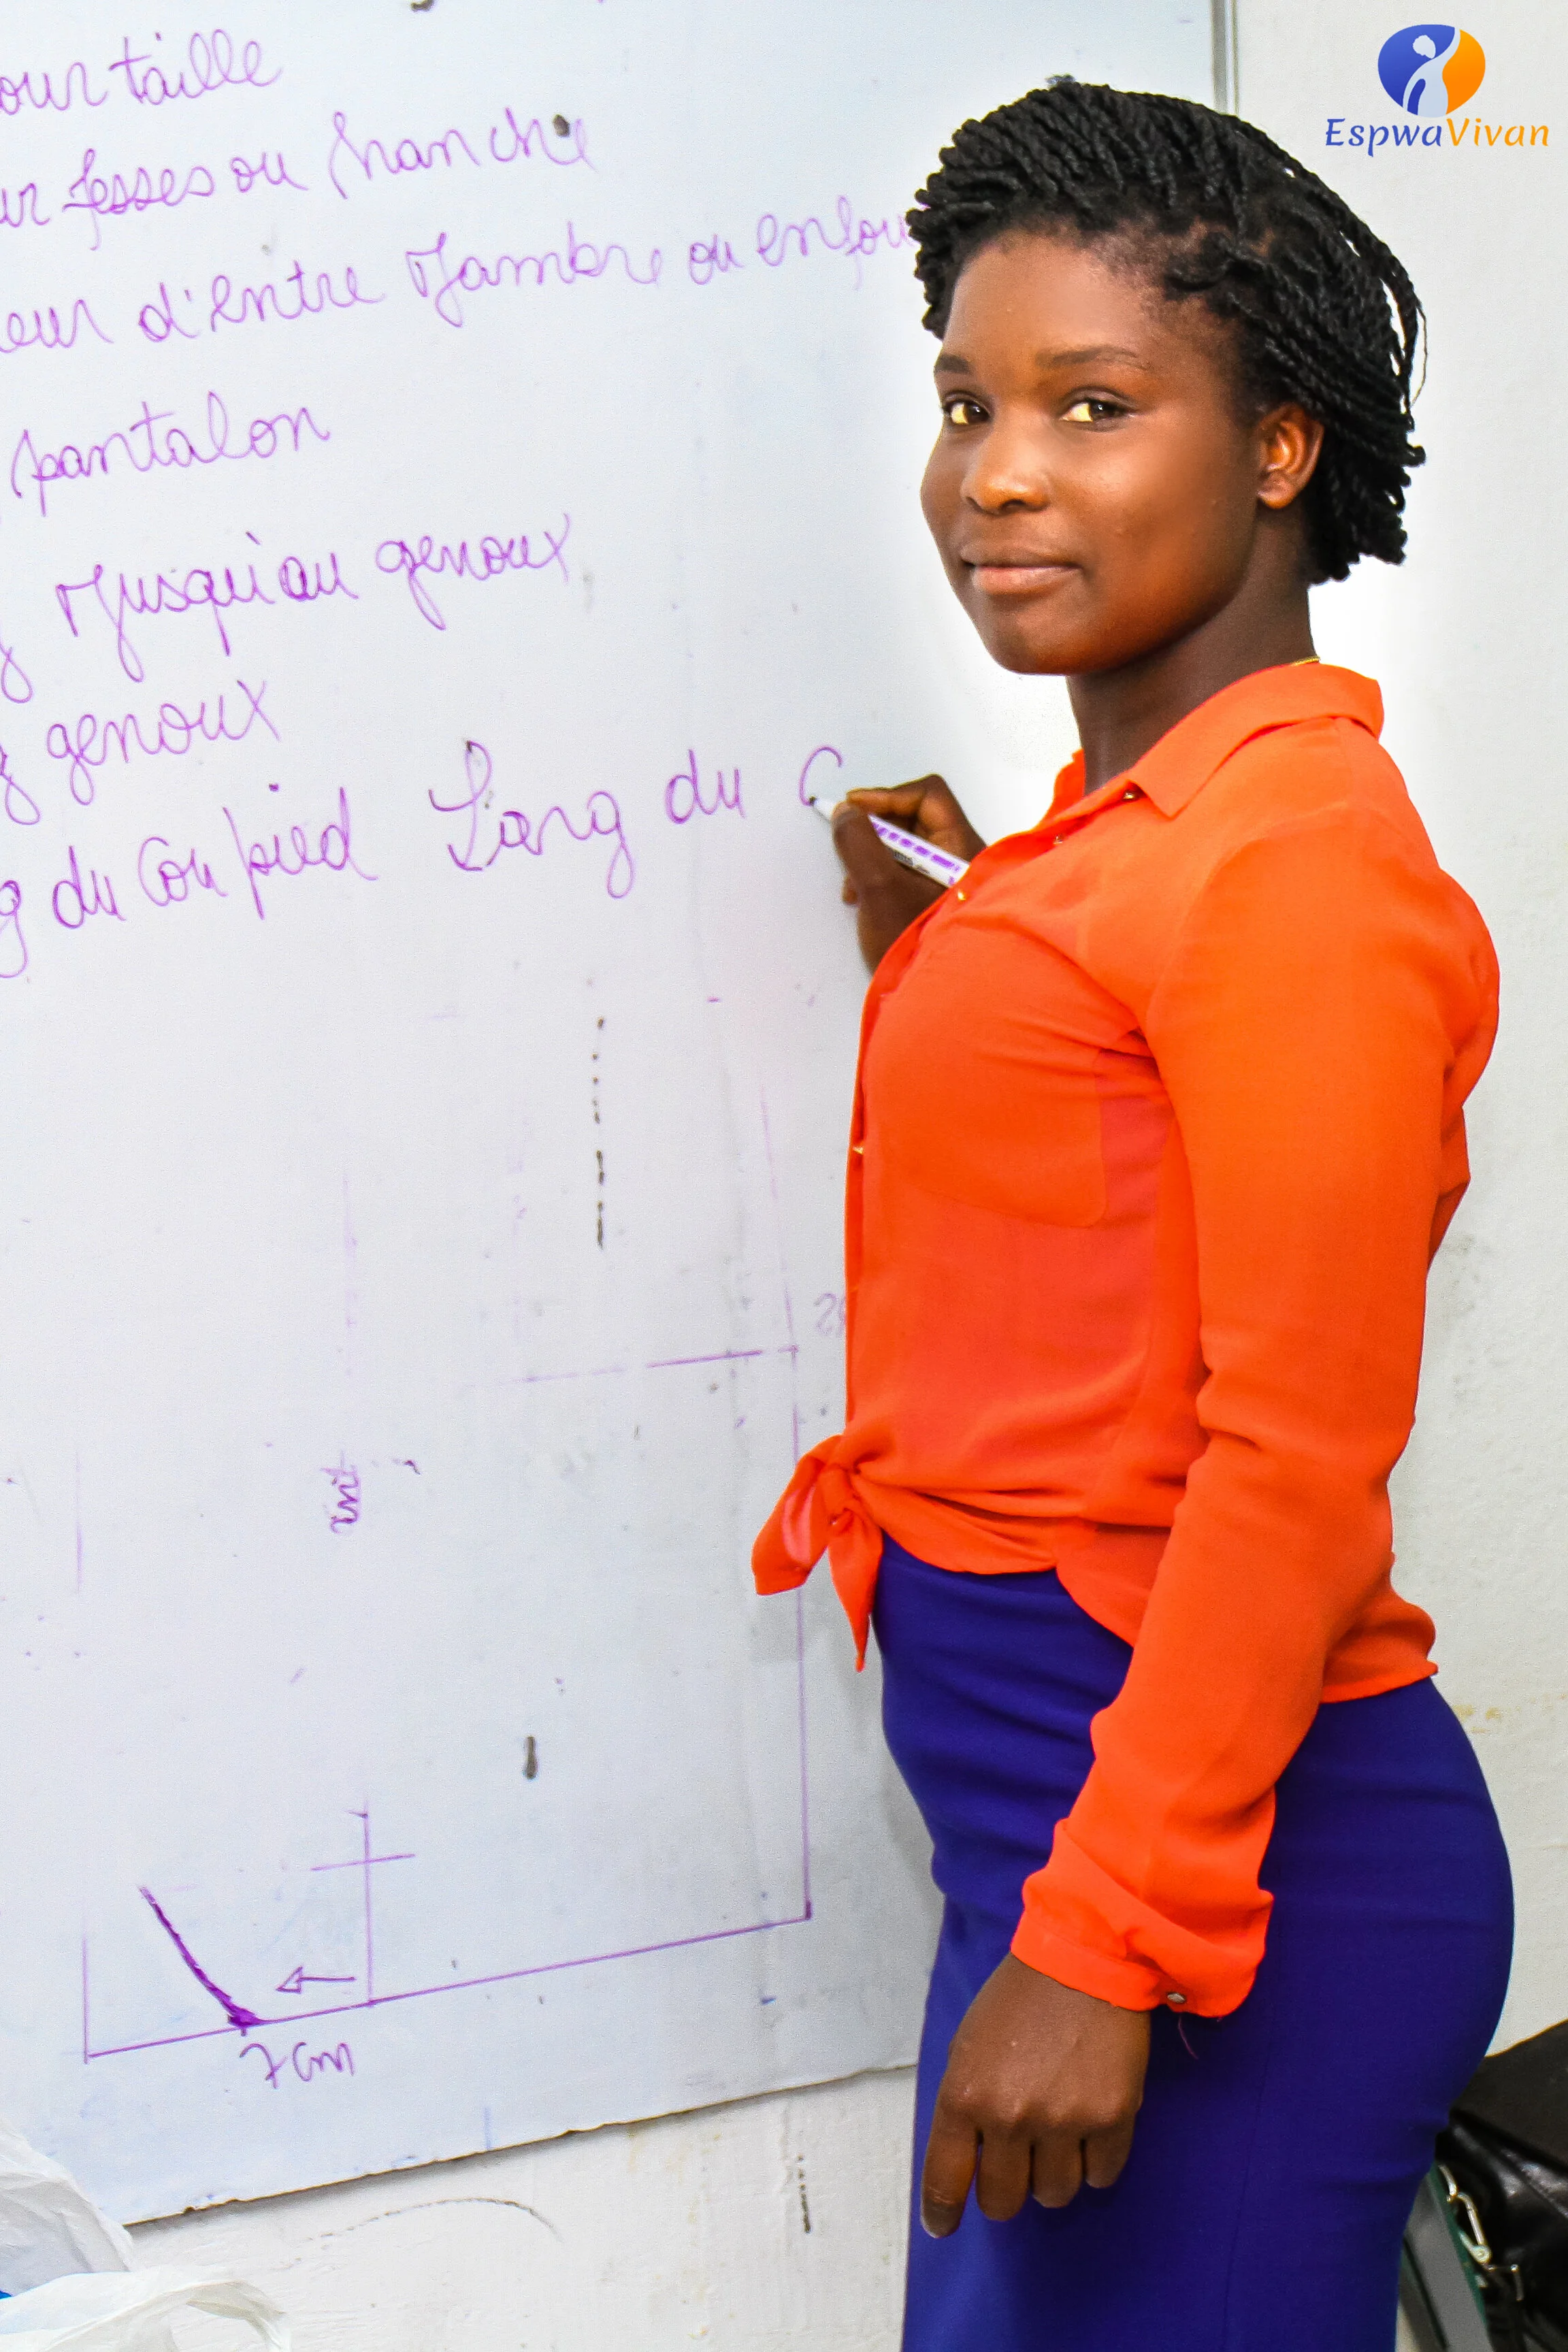 EspwaVivan
our taille
ur fesses ou hanche
eur d'entre Jambre ou enfou
pantalon
g Jusqu'au genoux
g genoux
g du Cou pied Larg du C
7 cm